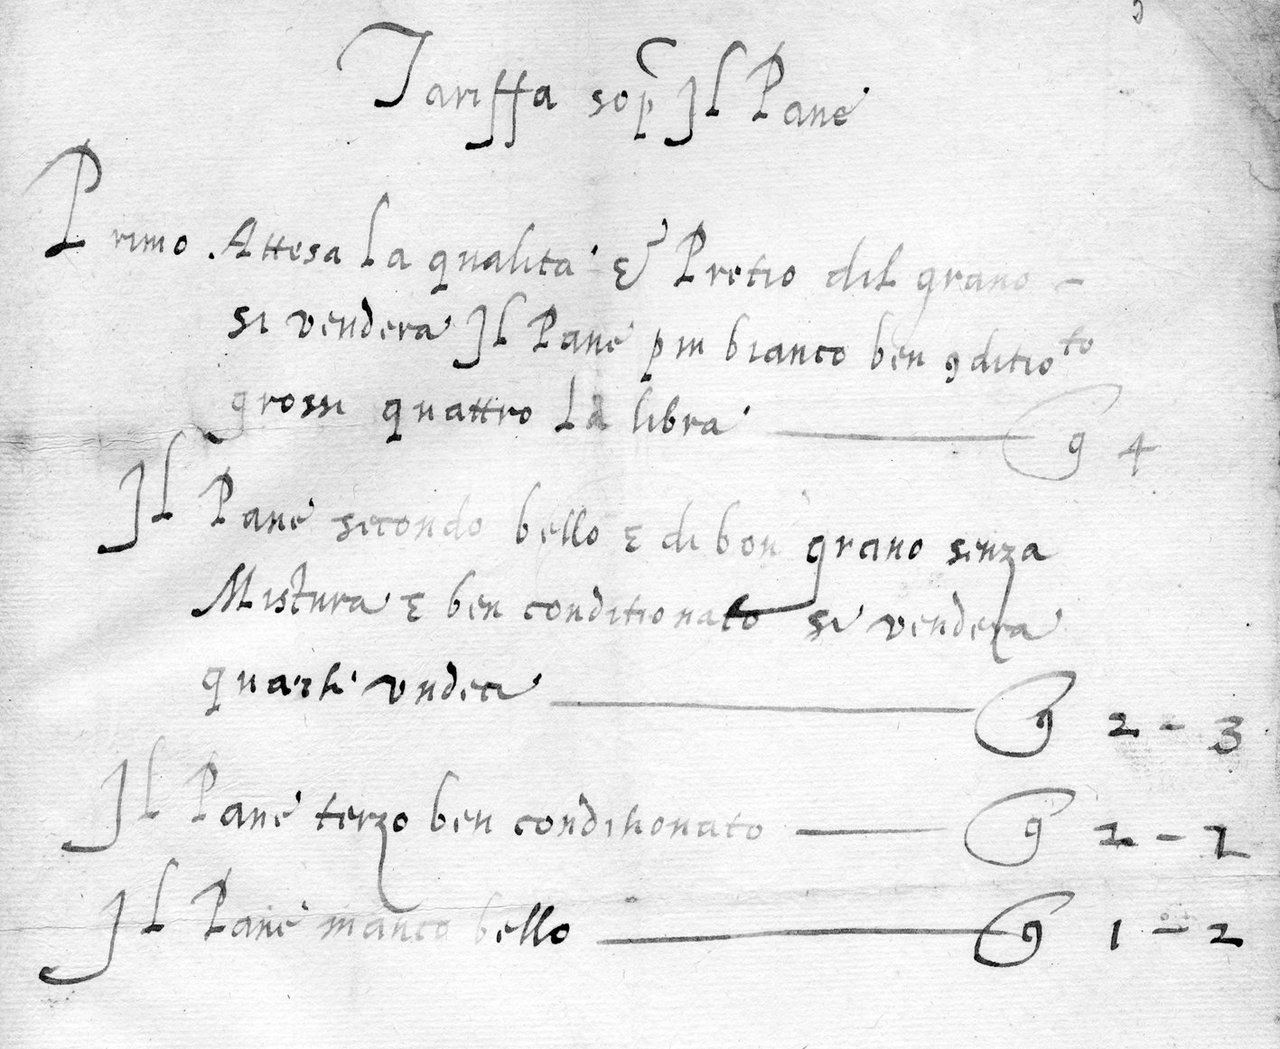 Tariffa sop̃ Il Pane
Primo. Attesa la qualita & Pretio dil grano -
si vendera Il Pane piu bianco ben 9ditio^to
grossi quattro la libra — g 4
Il Pane secondo bello e di bon grano senza
Mistura e ben conditionato si vendera
quarti undeci — g 2 - 3
Il Pane terzo ben conditionato — g 2 - 2
Il Pane manco bello — g 1 - 2